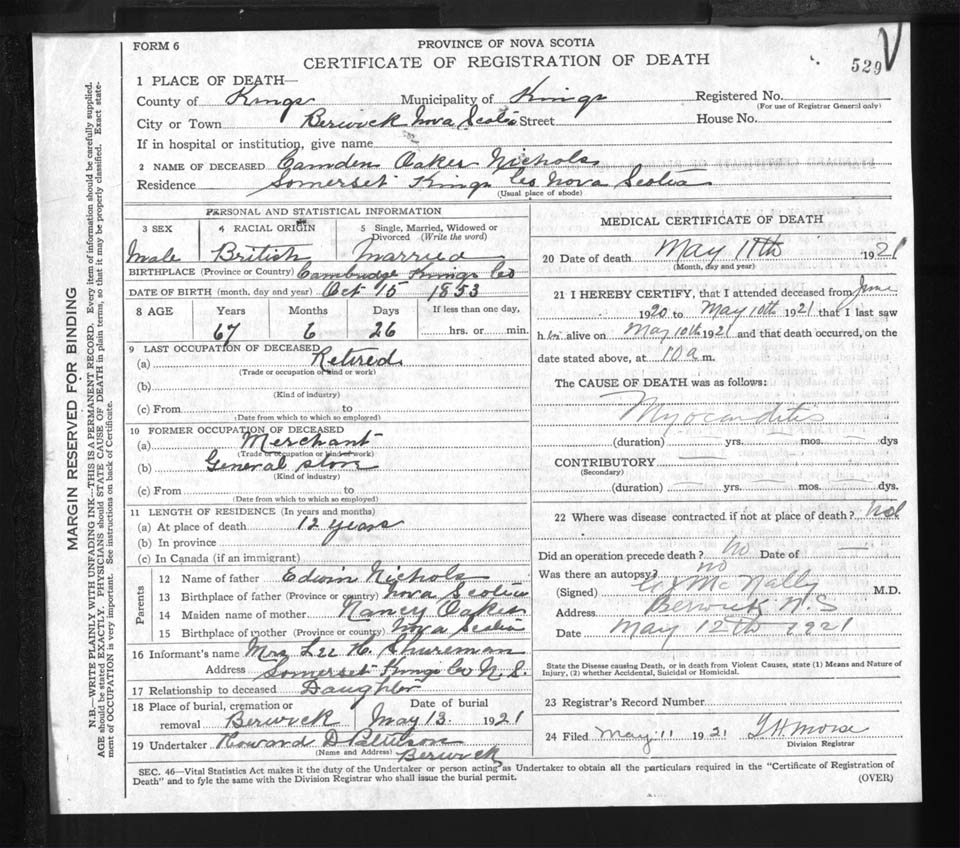 FORM 6
PROVINCE OF NOVA SCOTIA
CERTIFICATE OF REGISTRATION OF DEATH
529
1 PLACE OF DEATH—
County of Kings Municipality of Kings Registered No.
(For use of Registrar General only)
City or Town Berwick Nova Scotia Street House No.
If in hospital or institution, give name
2 NAME OF DECEASED Camden Oakes Nichols
Residence Somerset Kings Co Nova Scotia
(Usual place of abode)
PERSONAL AND STATISTICAL INFORMATION
3 SEX 4 RACIAL ORIGIN 5 Single, Married, Widowed or Divorced (Write the word)
Male British Married
BIRTHPLACE (Province or Country) Cambridge Kings Co
DATE OF BIRTH (month, day and year) Oct 15 1853
8 AGE Years Months Days If less than one day,
67 6 26 hrs. or min.
9 LAST OCCUPATION OF DECEASED
(a) Retired
(Trade or occupation or kind or work)
(b)
(Kind of industry)
(c) From to
(Date from which to which so employed)
10 FORMER OCCUPATION OF DECEASED
(a) Merchant
(Trade or occupation or kind of work)
(b) General store
(Kind of industry)
(c) From to
(Date from which to which so employed)
11 LENGTH OF RESIDENCE (In years and months)
(a) At place of death 12 years
(b) In province
(c) In Canada (if an immigrant)
Parents
12 Name of father Edwin Nichols
13 Birthplace of father (Province or country) Nova Scotia
14 Maiden name of mother Nancy Oakes
15 Birthplace of mother (Province or country) Nova Scotia
16 Informant's name Mrs Lee H. Chureman
Address Somerset Kings Co N.S.
17 Relationship to deceased Daughter
18 Place of burial, cremation or removal Berwick Date of burial May 13. 1921
19 Undertaker Howard D
(Name and Address) Berwick
MEDICAL CERTIFICATE OF DEATH
20 Date of death May 11th 1921
(Month, day and year)
21 I HEREBY CERTIFY, that I attended deceased from June
1920 to May 10th 1921 that I last saw
him alive on May 10th 1921 and that death occurred, on the
date stated above, at 10 a m.
The CAUSE OF DEATH was as follows:
Myocarditis
(duration) yrs. mos. dys
CONTRIBUTORY
(Secondary)
(duration) yrs. mos. dys.
22 Where was disease contracted if not at place of death?
Did an operation precede death? no Date of —
Was there an autopsy? no
(Signed) McNally M.D.
Address Berwick N.S
Date May 12th 1921
State the Disease causing Death, or in death from Violent Causes, state (1) Means and Nature of
Injury, (2) whether Accidental, Suicidal or Homicidal.
23 Registrar's Record Number
24 Filed May 11 1921 Morse
Division Registrar
SEC. 46—Vital Statistics Act makes it the duty of the Undertaker or person acting as Undertaker to obtain all the particulars required in the "Certificate of Registration of
Death" and to fyle the same with the Division Registrar who shall issue the burial permit. (OVER)
MARGIN RESERVED FOR BINDING
N.B.—WRITE PLAINLY WITH UNFADING INK—THIS IS A PERMANENT RECORD. Every item of information should be carefully supplied.
AGE should be stated EXACTLY. PHYSICIANS should STATE CAUSE OF DEATH in plain terms, so that it may be properly classified. Exact state-
ment of OCCUPATION is very important. See instructions on back of Certificate.